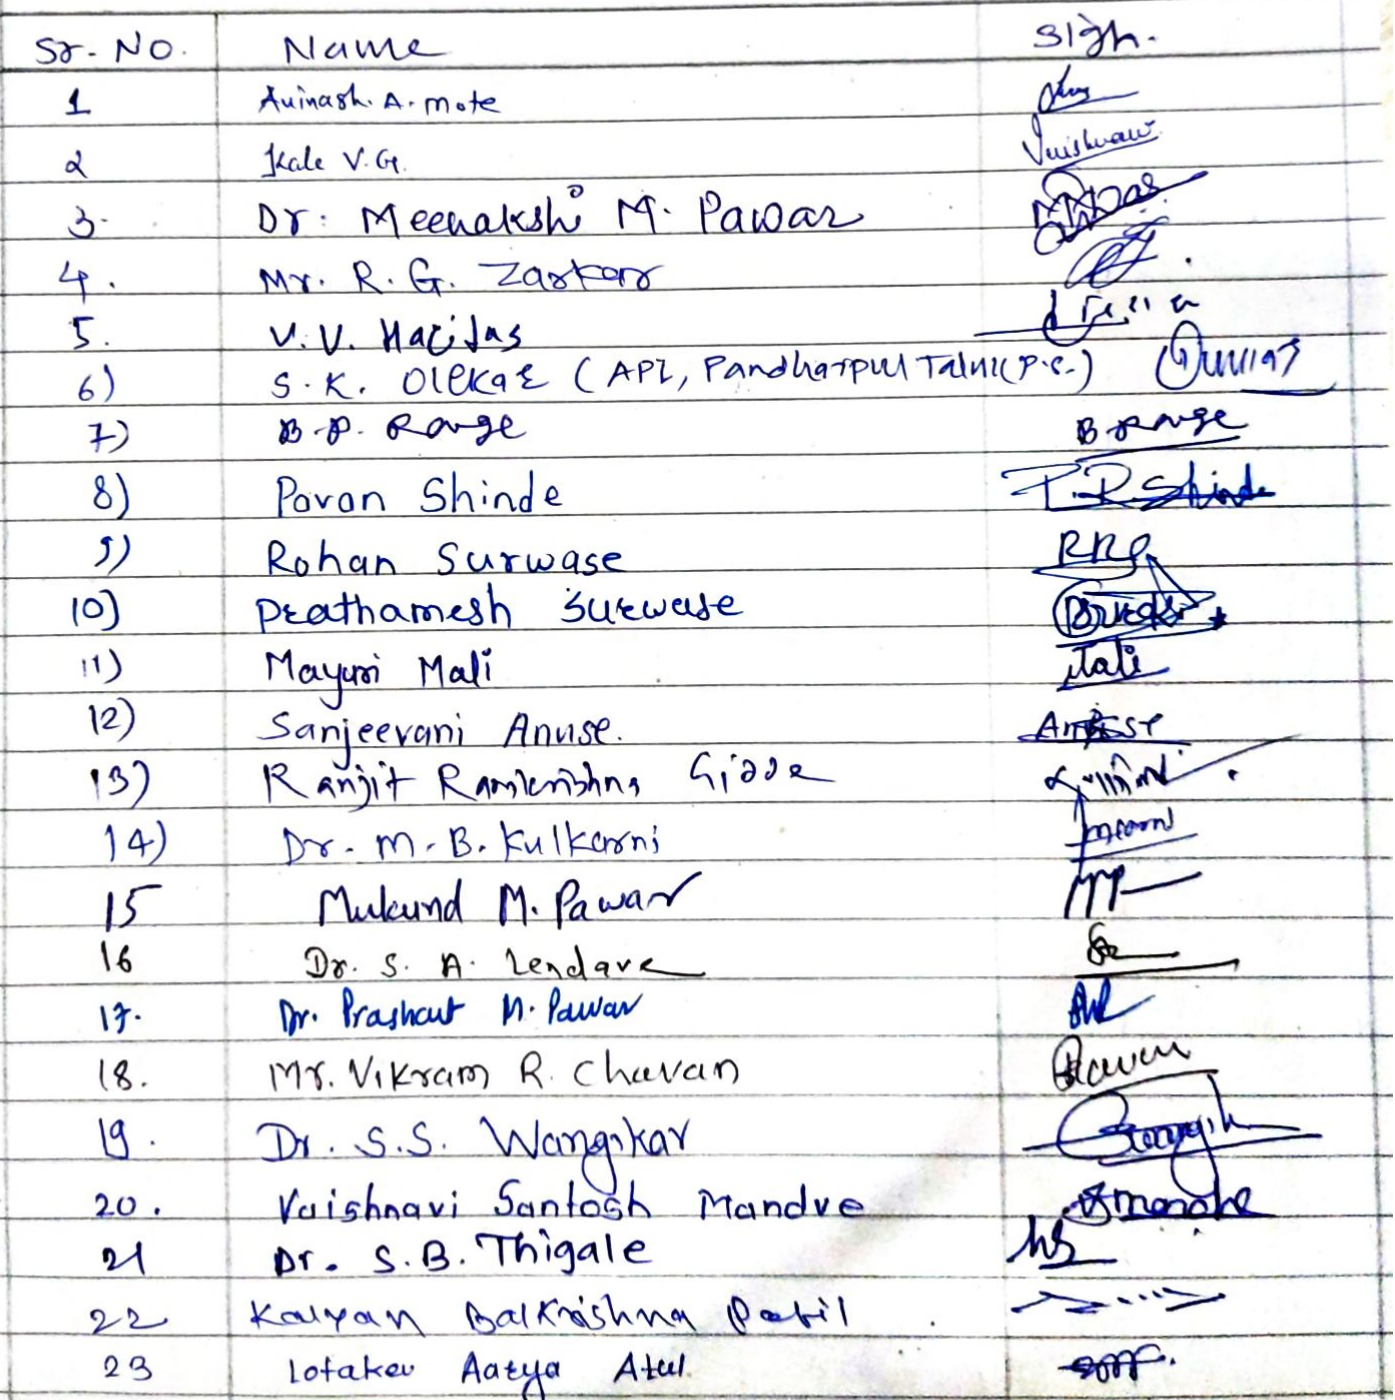 Sr. No. Name Sign.
1 Avinash. A. Mote
2 Kale V.G. Vaishnavi
3. Dr. Meenakshi M. Pawar
4. Mr. R. G. Zarkar
5. V. V. Haridas
6) S. K. Olekar (API, Pandharpur Taluk P.S.)
7) B. P. Ronge B Ronge
8) Pavan Shinde P.R. Shinde
9) Rohan Surwase
10) Prathamesh Surwase
11) Mayuri Mali Mali
12) Sanjeevani Anuse. Anuse
13) Ranjit Ramkrishna Gidde
14) Dr. M. B. Kulkarni
15 Mukund M. Pawar
16 Dr. S. A. Lendave
17. Dr. Prashant M. Pawar
18. Mr. Vikram R. Chavan
19. Dr. S.S. Wangikar
20. Vaishnavi Santosh Mandve
21 Dr. S. B. Thigale
22 Kalyan Balkrishna Patil
23 Lotaker Aarya Atul.